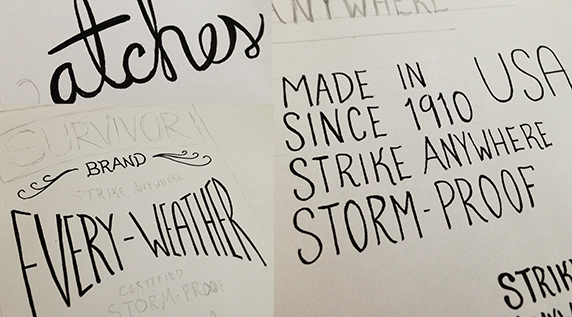 atches
SURVIVOR
BRAND
STRIKE ANYWHERE
EVERY-WEATHER
CERTIFIED
STORM-PROOF
ANYWHERE
MADE IN USA
SINCE 1910
STRIKE ANYWHERE
STORM-PROOF
STRIK